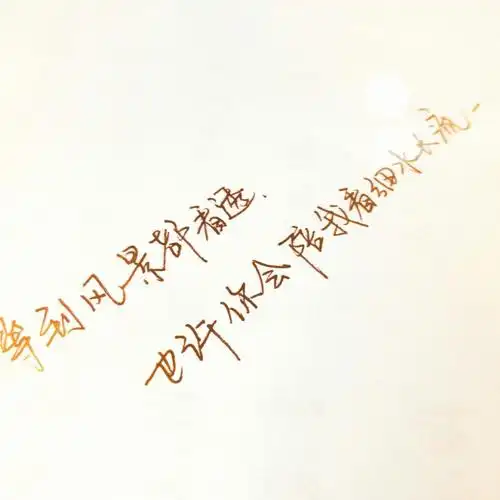 等到风景都看透.
也许你会陪我看细水长流-